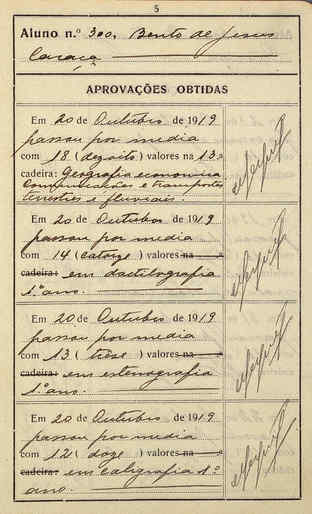 5
Aluno n.º 300, Bento de Jesus
Caraça
APROVAÇÕES OBTIDAS
Em 20 de Outubro de 1919
passou por media
com 18 (dezoito) valores na 13ª
cadeira: Geografia economica
Comunicações e transportes
terrestres e fluviais.
Em 20 de Outubro de 1919
passou por media
com 14 (catorze) valores na
cadeira: em dactilografia
1.º ano.
Em 20 de Outubro de 1919
passou por media
com 13 (trese) valores na
cadeira: em estenografia
1.º ano.
Em 20 de Outubro de 1919
passou por media
com 12 (doze) valores na
cadeira: em caligrafia 1.º
ano.